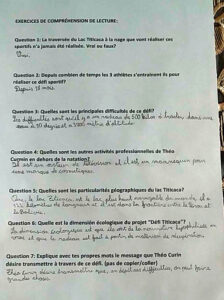 EXERCICES DE COMPRÉHENSION DE LECTURE:
Question 1: La traversée du Lac Titicaca à la nage que vont réaliser ces
sportifs n'a jamais été réalisée. Vrai ou faux?
Vrai.
Question 2: Depuis combien de temps les 3 athlètes s'entrainent ils pour
réaliser ce défi sportif?
Depuis 18 mois.
Question 3: Quelles sont les principales difficultés de ce défi?
Les difficultés sont qu'il y a un radeau de 500 kilos à tracter dans une
eau à 10 degrés à 3800 mètre d'altitude.
Question 4: Quelles sont les autres activités professionnelles de Théo
Curin en dehors de la natation?
Il est un acteur de télévision et il est un mannequin pour
une marque de cosmétiques.
Question 5: Quelles sont les particularités géographiques du lac Titicaca?
Que le lac Titicaca est le plus haut navigable du monde, il a
122 kilomètres de longueur et il est dans la frontière entre le Pérou et
la Bolivie.
Question 6: Quelle est la dimension écologique du projet "Défi Titicaca"?
La dimension écologique est que
et que le radeau est fait à partir de matériaux de récupération.
Question 7: Explique avec tes propres mots le message que Théo Curin
désire transmettre à travers de ce défi. (pas de copier/coller)
Théo Curin désire transmettre que, on peut
faire
grandes choses.